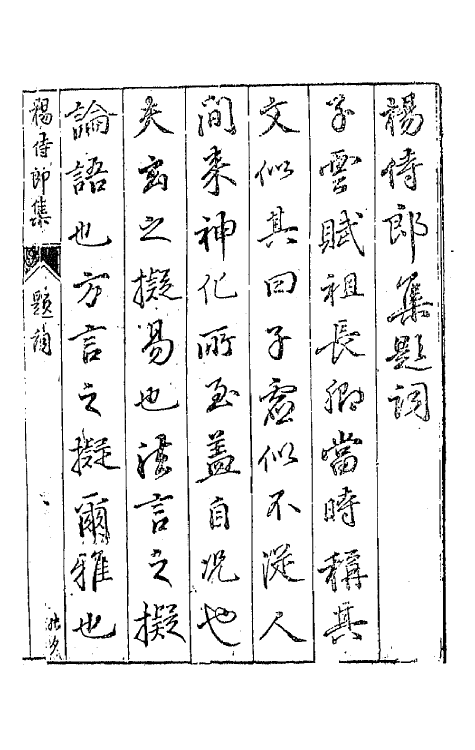 楊侍郎集題詞
子雲賦祖長卿當時稱其
文似其曰子虛似不從人
間來神化所至蓋自况也
夫玄之擬易也法言之擬
論語也方言之擬爾雅也
楊侍郎集 題詞